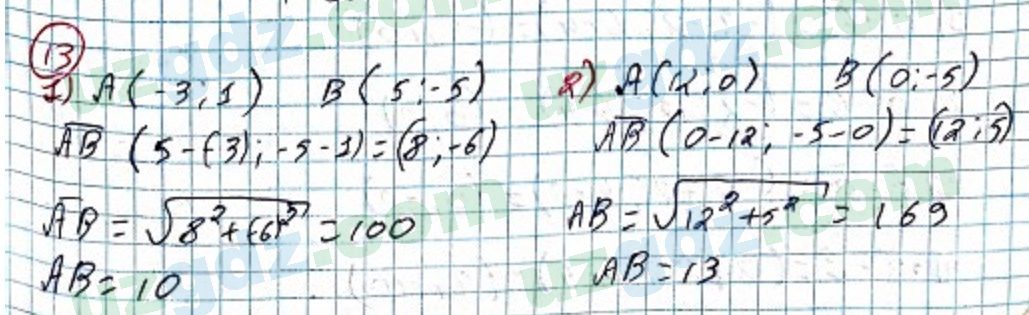 13
1) A(-3;1) B(5;-5)
AB (5-(-3); -5-1)=(8;-6)
AB = √8²+(-6)² = 100
AB = 10
2) A(12;0) B(0;-5)
AB (0-12; -5-0)=(12;5)
AB = √12²+5² = 169
AB = 13
uzgdz.com